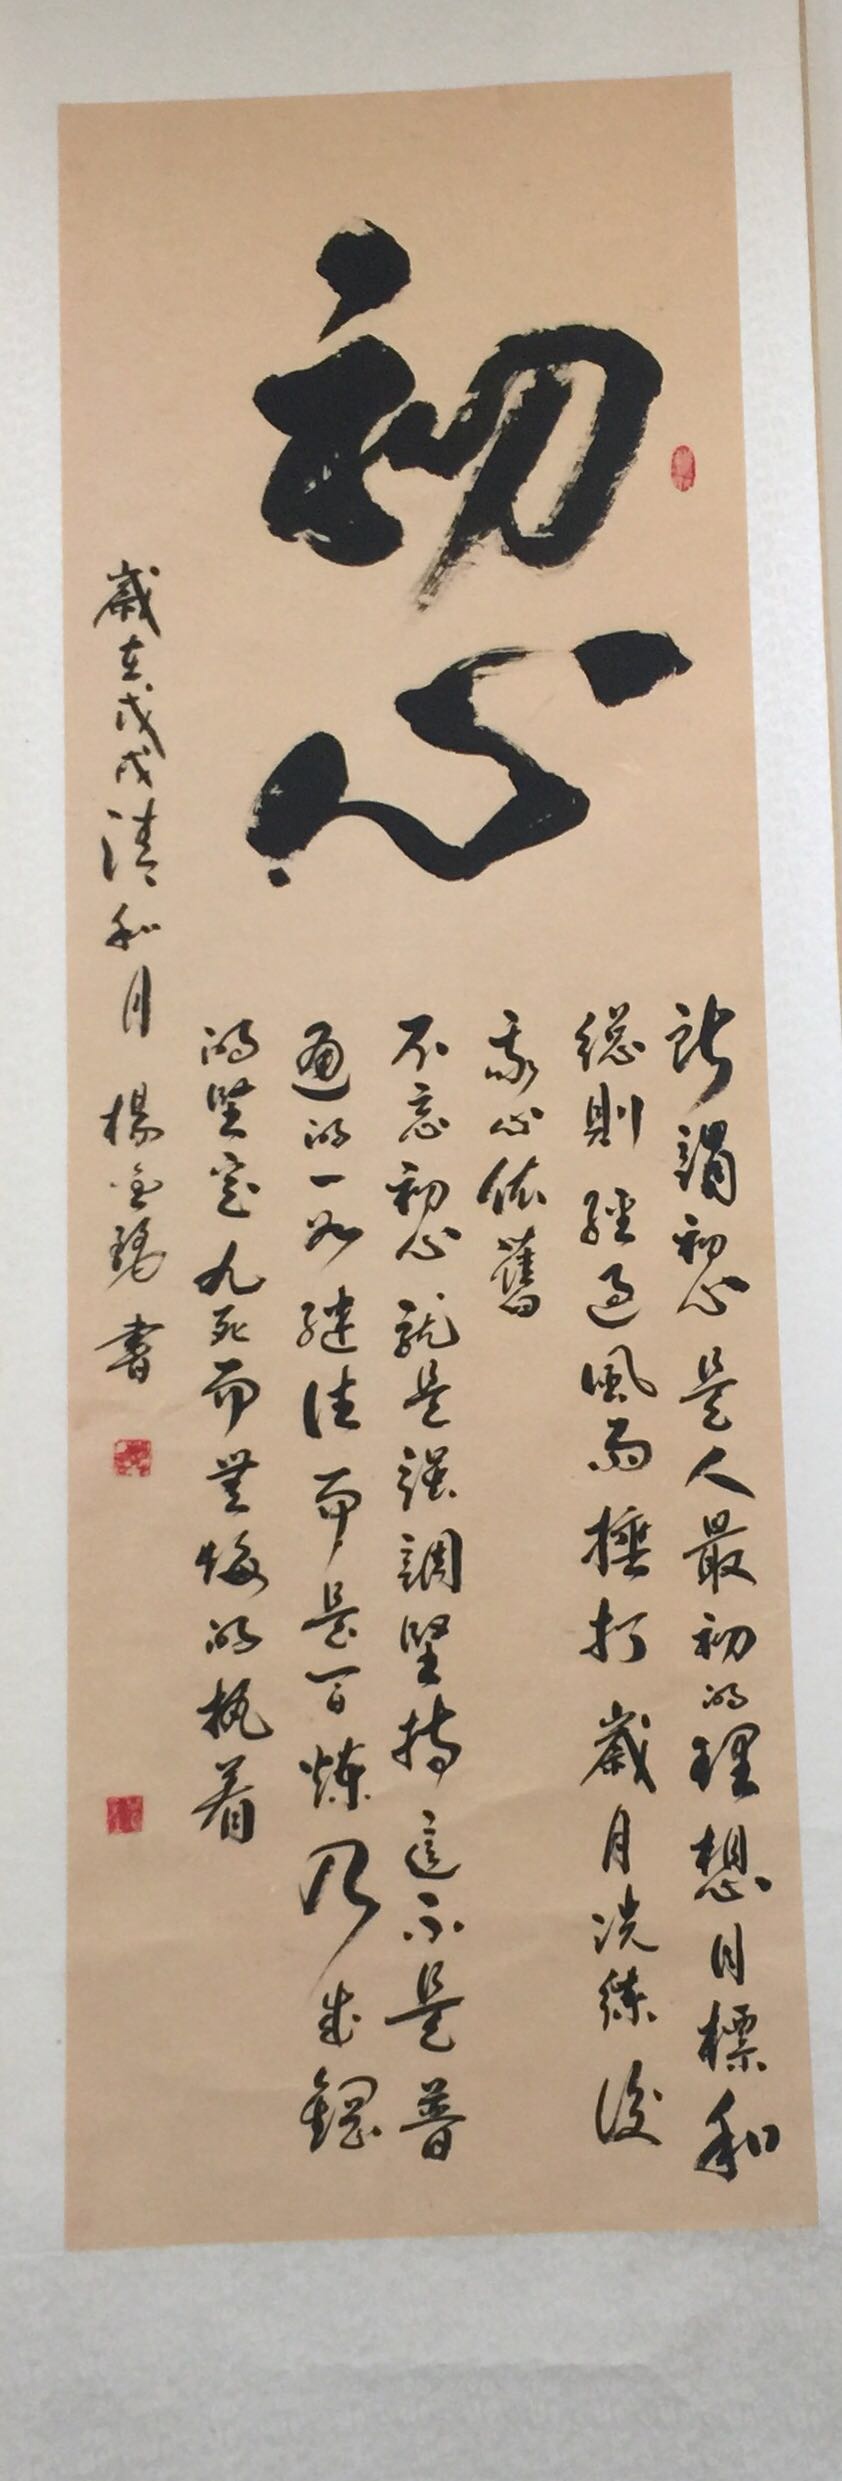 初心
所謂初心是人最初的理想目標和
總則經過風雨捶打歲月洗練後
我心依舊
不忘初心就是强調堅持這不是普
通的一如继往而是百煉乃成鋼
的堅定九死而無悔的执着
歲在戊戌清和月楊書